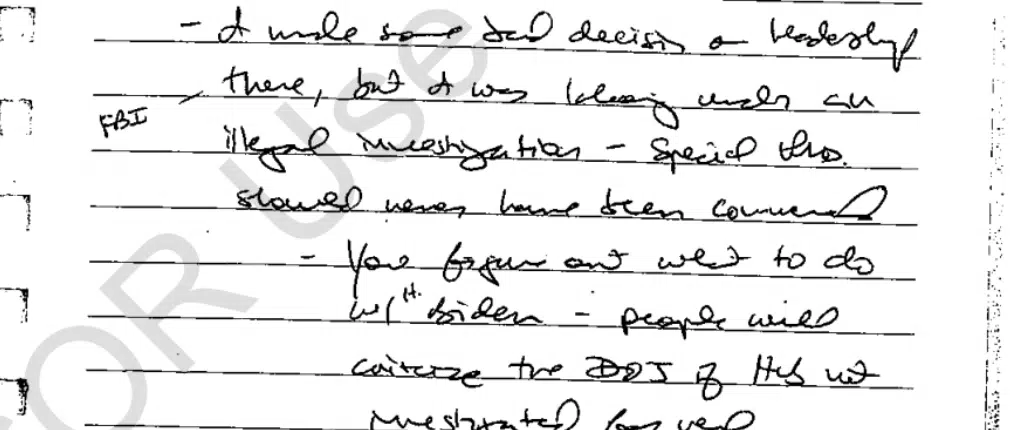 - I made some bad decisions on leadership
there, but I was laboring under an
FBI
illegal investigation - Special Pros.
should never have been commenced
- You figure out what to do
w/ H. Biden - people will
criticize the DOJ if He's not
investigated for real
FOR Use